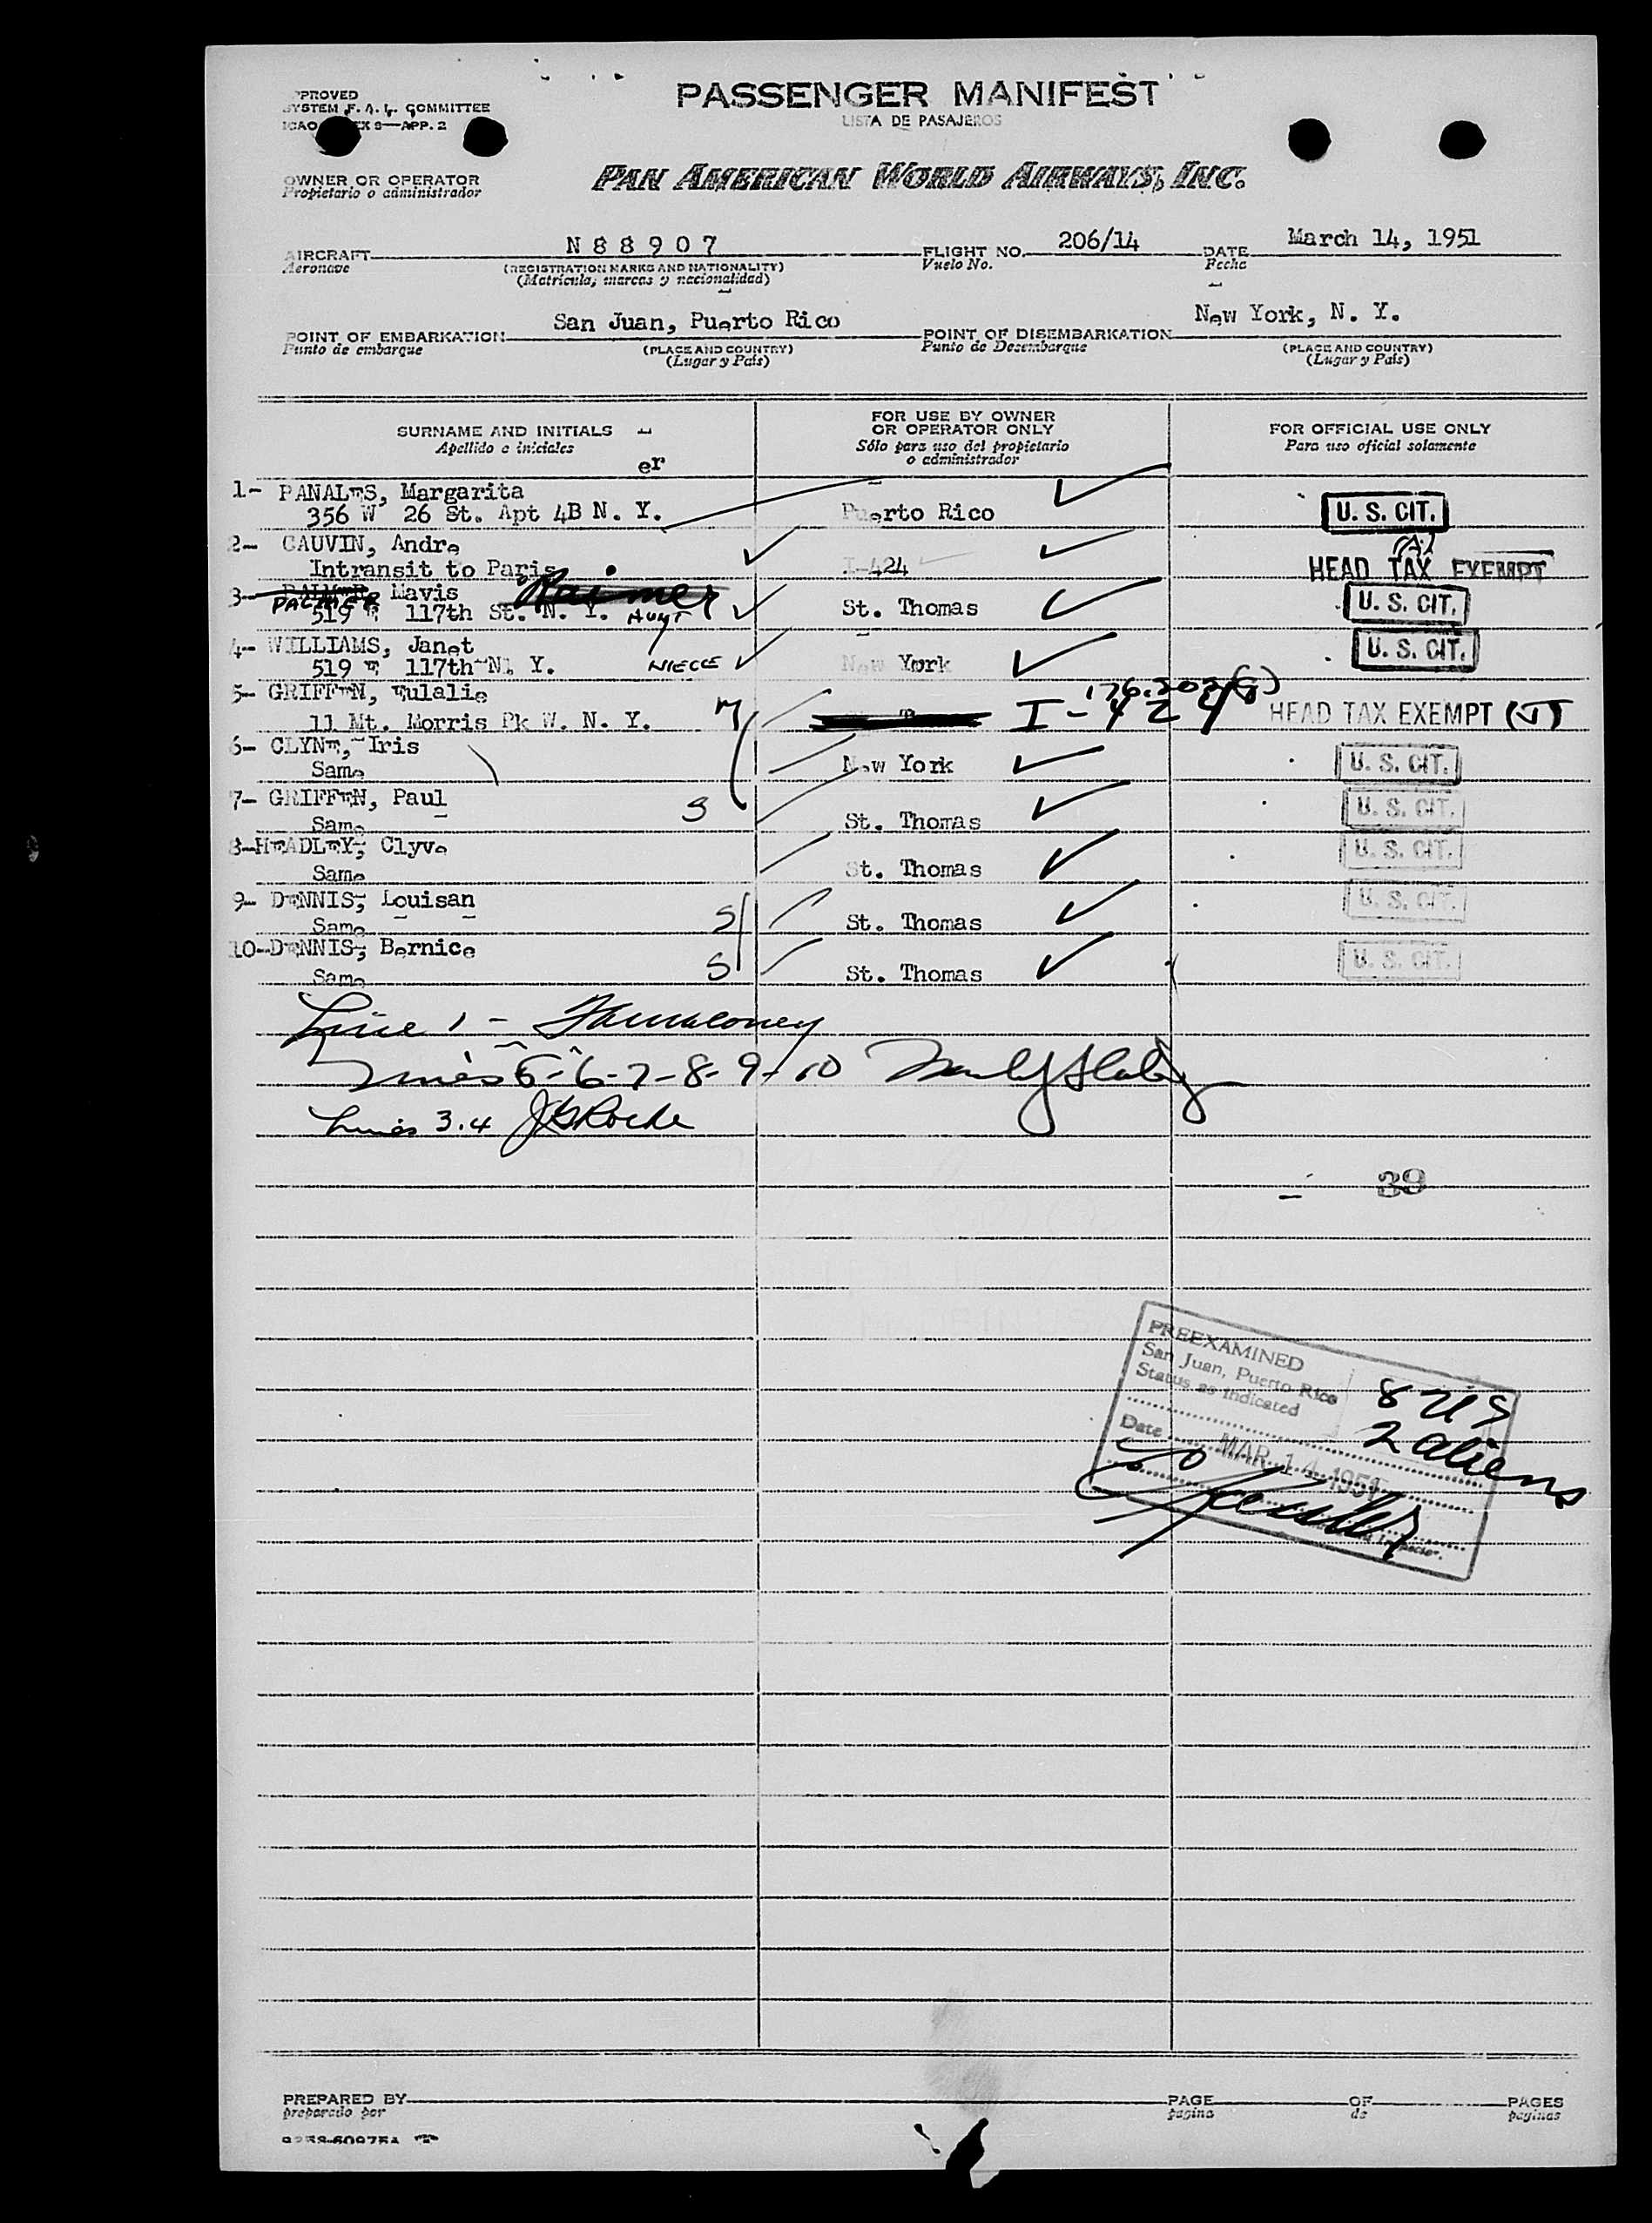 PPROVED
SYSTEM F. A. L. COMMITTEE
ICAO EX 9—APP. 2
PASSENGER MANIFEST
LISTA DE PASAJEROS
OWNER OR OPERATOR
Propietario o administrador
PAN AMERICAN WORLD AIRWAYS, INC.
AIRCRAFT N 8 8 9 0 7 FLIGHT NO. 206/14 DATE March 14, 1951
Aeronave (REGISTRATION MARKS AND NATIONALITY) Vuelo No. Fecha
(Matricula, marcas y nacionalidad)
POINT OF EMBARKATION San Juan, Puerto Rico POINT OF DISEMBARKATION New York, N. Y.
Punto de embarque (PLACE AND COUNTRY) Punto de Desembarque (PLACE AND COUNTRY)
(Lugar y País) (Lugar y País)
SURNAME AND INITIALS FOR USE BY OWNER OR OPERATOR ONLY FOR OFFICIAL USE ONLY
Apellido e iniciales Sólo para uso del propietario o administrador Para uso oficial solamente
er
1- PANALES, Margarita
356 W 26 St. Apt 4B N. Y. Puerto Rico U. S. CIT.
2- CAUVIN, Andre
Intransit to Paris I-424 HEAD TAX EXEMPT
3- PALMER Mavis
519 E 117th St. N. Y. AUNT St. Thomas U. S. CIT.
4- WILLIAMS, Janet
519 E 117th N. Y. NIECE New York U. S. CIT.
5- GRIFFEN, Eulalie
11 Mt. Morris Pk W. N. Y. M I-424 HEAD TAX EXEMPT
6- CLYNE, Iris
Same New York U. S. CIT.
7- GRIFFEN, Paul
Same S St. Thomas U. S. CIT.
8-HEADLEY, Clyve
Same St. Thomas U. S. CIT.
9- DENNIS, Louisan
Same S St. Thomas U. S. CIT.
10-DENNIS, Bernice
Same S St. Thomas U. S. CIT.
Line 1 -
Lines 5-6-7-8-9-10
Lines 3.4
39
PREEXAMINED
San Juan, Puerto Rico
Status as indicated
8 US
2 aliens
Date MAR 14 1951
Inspector.
PREPARED BY PAGE OF PAGES
preparado por pagina de paginas